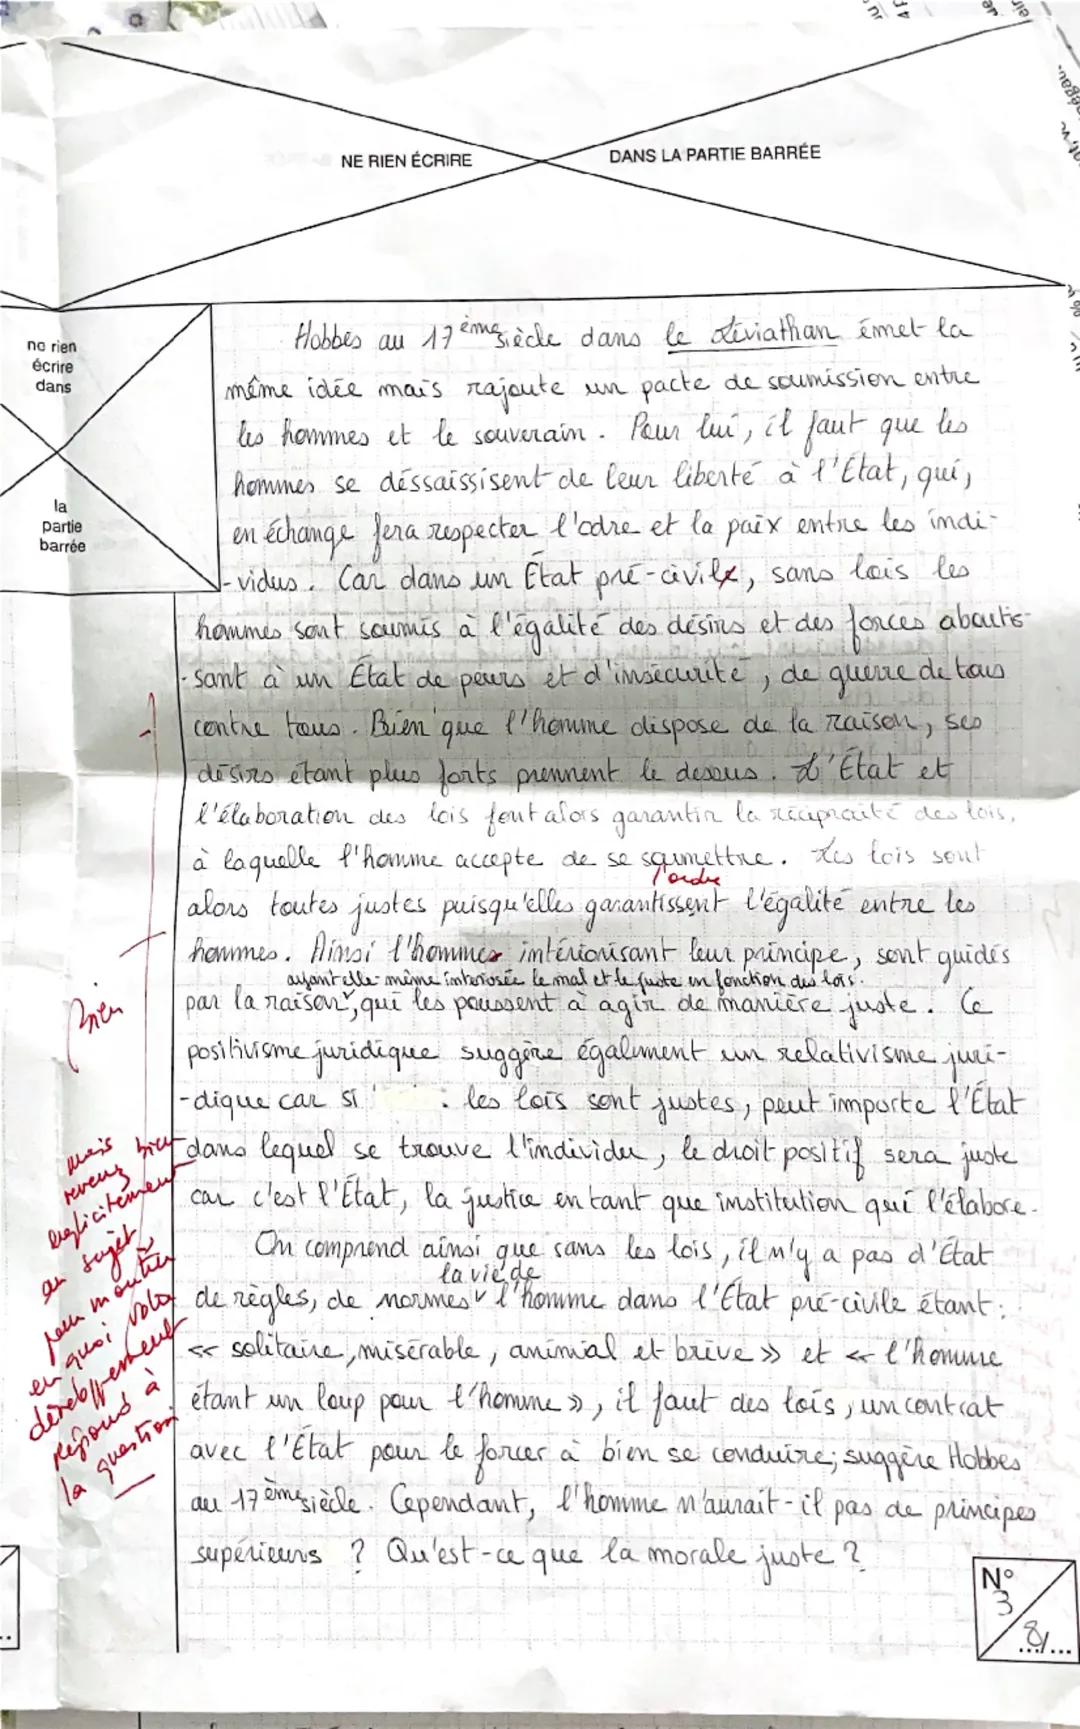 NE RIEN ÉCRIRE
DANS LA PARTIE BARRÉE
ne rien
écrire
dans
la
partie
barrée
Hobbes au 17ème siècle dans le Léviathan émet la
même idée mais rajoute un pacte de soumission entre
les hommes et le souverain. Pour lui, il faut que les
hommes se déssaississent de leur liberté à l'État, qui,
en échange fera respecter l'odre et la paix entre les indi-
-vidus. Car dans un État pré-civil, sans lois les
hommes sont soumis à l'égalité des désirs et des forces aboutis-
-sant à un État de peurs et d'insécurité, de guerre de tous
contre tous. Bien que l'homme dispose de la raison, ses
désirs étant plus forts prennent le dessus. L'État et
l'élaboration des lois font alors garantir la réciprocité des lois,
à laquelle l'homme accepte de se soumettre. Les lois sont
l'ordre
alors toutes justes puisqu'elles garantissent l'égalité entre les
hommes. Ainsi l'hommes intériorisant leur principe, sont guidés
ayant elle-même interiosée le mal et le juste en fonction des lois.
par la raison, qui les poussent à agir de manière juste. Ce
positivisme juridique suggère également un relativisme juri-
-dique car si les lois sont justes, peut importe l'État
dans lequel se trouve l'individu, le droit positif sera juste
car c'est l'État, la justice en tant que institution qui l'élabore.
On comprend ainsi que sans les lois, il n'y a pas d'État
la vie de
de règles, de normes l'homme dans l'État pré-civile étant :
« solitaire, misérable, animial et brève » et « l'homme
étant un loup pour l'homme », il faut des lois, un contrat
avec l'État pour le forcer à bien se conduire; suggère Hobbes
au 17ème siècle. Cependant, l'homme n'aurait-il pas de principes
supérieurs ? Qu'est-ce que la morale juste ?
Bien
mais
revenez bien
explicitement
au sujet
pour montrer
en quoi votre
développement
répond à
la question
N°
3
8/...